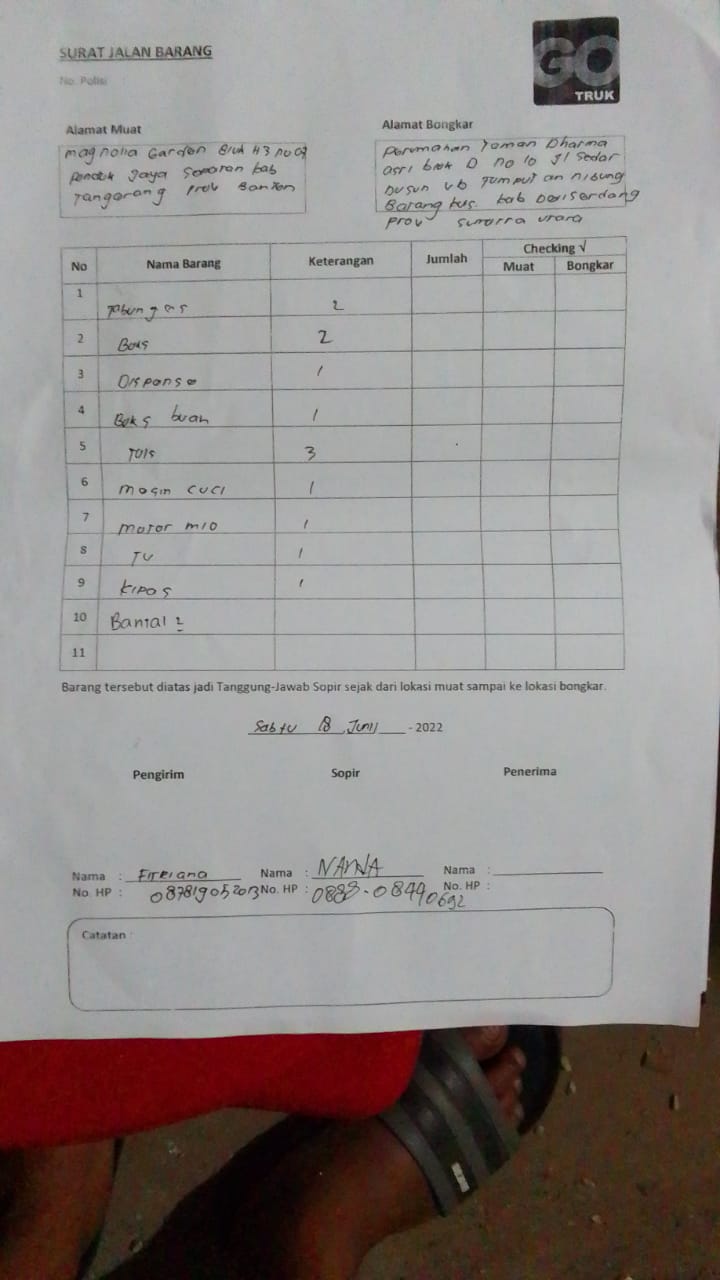 SURAT JALAN BARANG
GO
TRUK
No. Polisi
Alamat Muat
Magnolia Garden Blok H3 no 09
Pondok Jaya Sepatan kab
Tangerang Prov Banten
Alamat Bongkar
Perumahan Taman Dharma
asri blok D no 10 Jl Sedar
Dusun Vb Tumpatan nibung
Barang kus kab Deliserdang
Prov Sumatra utara
No Nama Barang Keterangan Jumlah Checking √
Muat Bongkar
1 Tabung gas 2
2 Boks 2
3 Dispense 1
4 Boks buah 1
5 Tuls 3
6 Mesin cuci 1
7 Motor mio 1
8 TV 1
9 Kipas 1
10 Bantal 2
11
Barang tersebut diatas jadi Tanggung-Jawab Sopir sejak dari lokasi muat sampai ke lokasi bongkar.
Sabtu 18, Juni - 2022
Pengirim Sopir Penerima
Nama : Fitriana Nama : NANA Nama :
No. HP : 087819052013 No. HP : 0888-08440692 No. HP :
Catatan :